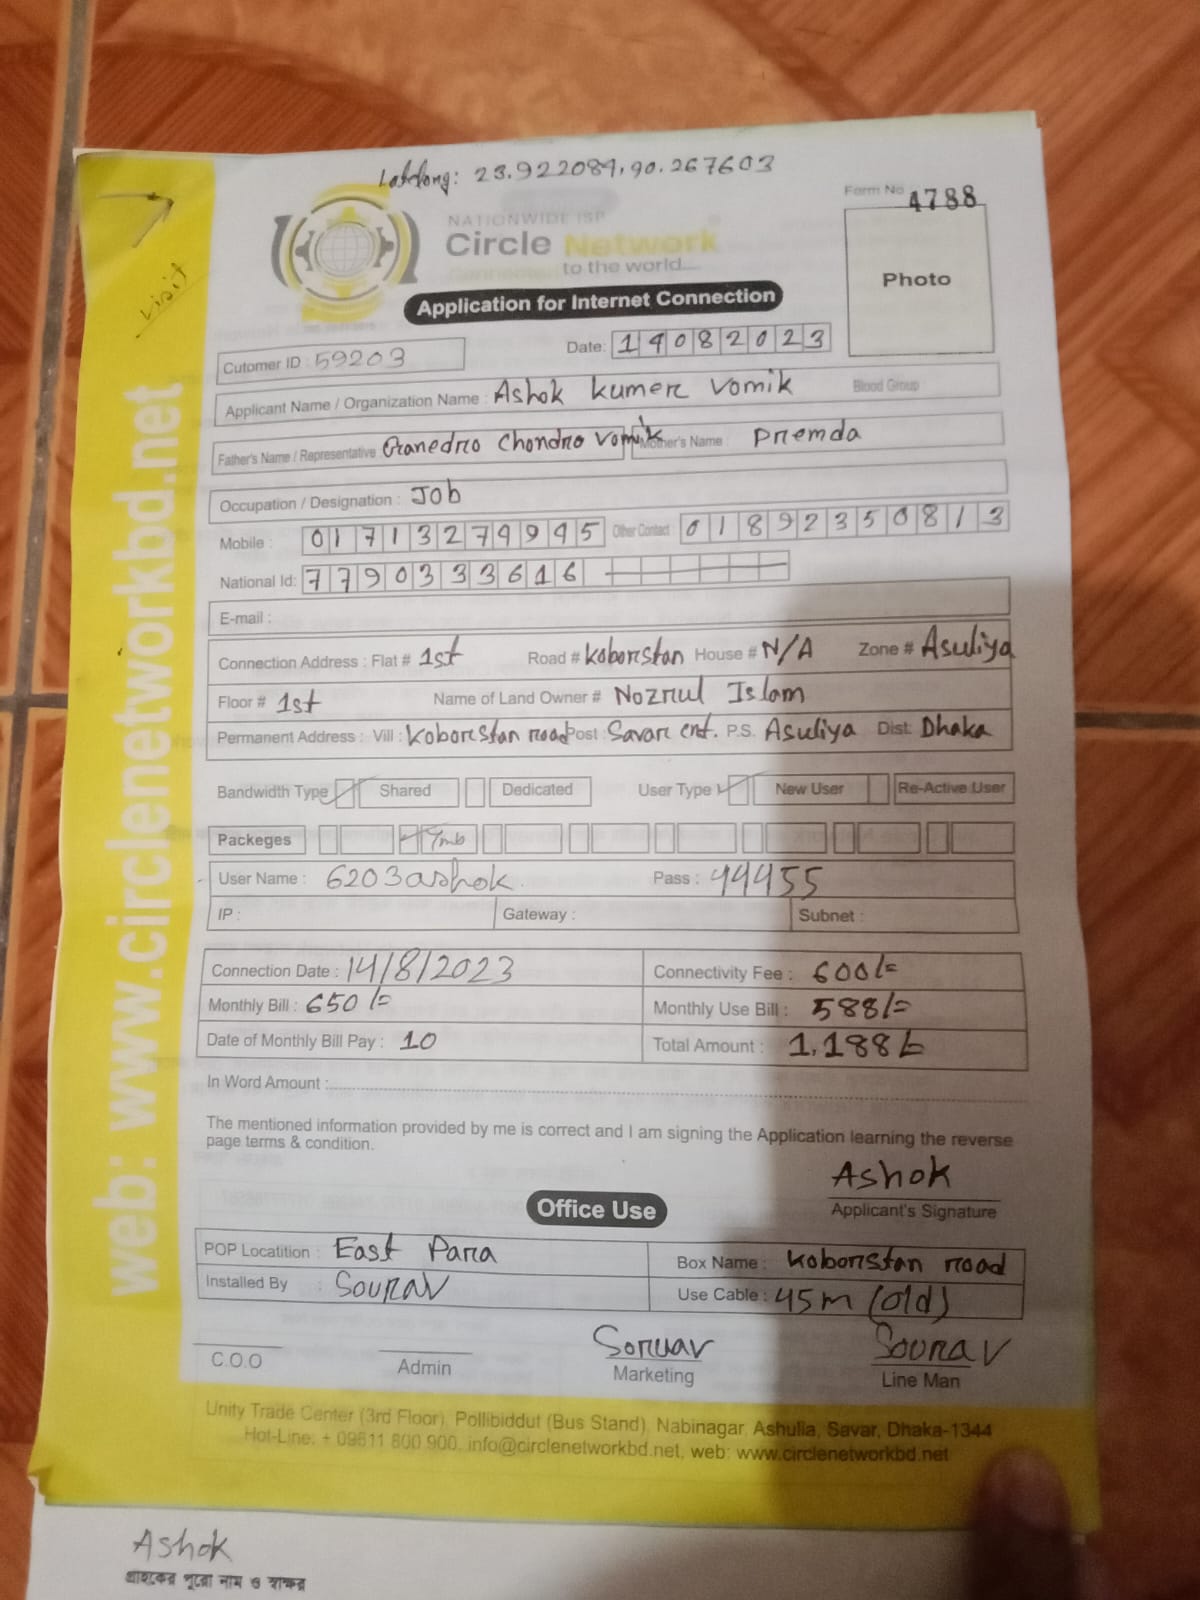 Latlong: 23.922089,90.267603
Form No 4788
NATIONWIDE ISP
Circle Network
to the world....
Photo
Application for Internet Connection
visit
Cutomer ID : 59203
Date: 14082023
Applicant Name / Organization Name : Ashok kumer vomik Blood Group
Father's Name / Representative Granedro Chondro vomik Mother's Name : Premda
Occupation / Designation : Job
Mobile : 01713279995 Other Contact 01892350813
National Id: 7790333616
E-mail :
Connection Address : Flat # 1st Road # koborstan House # N/A Zone # Asuliya
Floor # 1st Name of Land Owner # Nozrul Islam
Permanent Address : Vill : Koborstan road Post : Savar cnt. P.S. Asuliya Dist: Dhaka
Bandwidth Type Shared Dedicated User Type New User Re-Active User
Packeges 7mb
User Name : 6203ashok Pass : 44455
IP : Gateway : Subnet :
Connection Date : 14/8/2023 Connectivity Fee : 600/=
Monthly Bill : 650/= Monthly Use Bill : 588/=
Date of Monthly Bill Pay : 10 Total Amount : 1,188/=
In Word Amount :
The mentioned information provided by me is correct and I am signing the Application learning the reverse
page terms & condition.
Ashok
Applicant's Signature
Office Use
POP Locatition : East Para Box Name : koborstan road
Installed By : Sourav Use Cable : 45m (old)
Soruav Sourav
C.O.O Admin Marketing Line Man
Unity Trade Center (3rd Floor), Pollibiddut (Bus Stand), Nabinagar, Ashulia, Savar, Dhaka-1344
Hot-Line: + 09611 800 900, info@circlenetworkbd.net, web: www.circlenetworkbd.net
web: www.circlenetworkbd.net
Ashok
গ্রাহকের পুরো নাম ও স্বাক্ষর